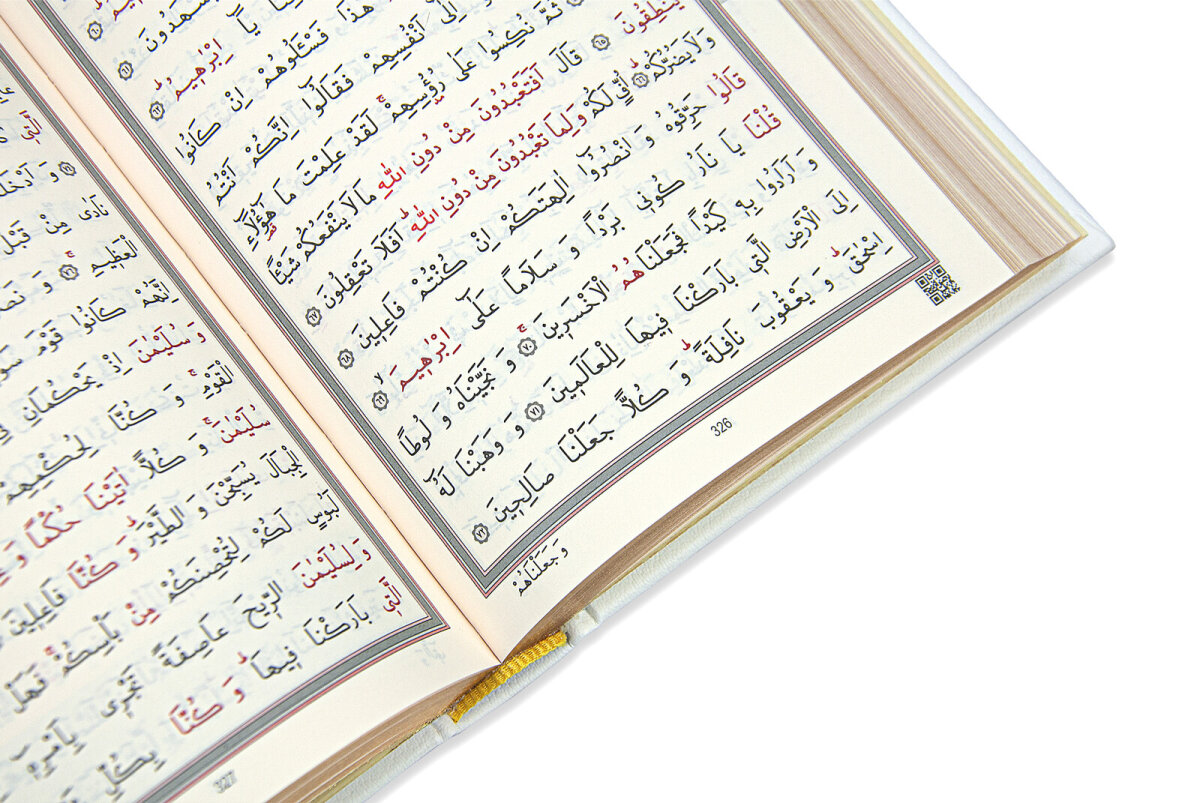 يَشْهَدُونَ ٦١
يَٓا اِبْرٰهٖيمُ ٦٢
هٰذَا فَسْـَٔلُوهُمْ اِنْ كَانُوا
اِلٰٓى اَنْفُسِهِمْ فَقَالُٓوا اِنَّكُمْ اَنْتُمُ
ثُمَّ نُكِسُوا عَلٰى رُؤُسِهِمْ لَقَدْ عَلِمْتَ مَا هٰٓؤُلَٓاءِ
يَنْطِقُونَ ٦٥ قَالَ اَفَتَعْبُدُونَ مِنْ دُونِ اللّٰهِ مَا لَا يَنْفَعُكُمْ شَيْـًٔا
وَلَا يَضُرُّكُمْ ٦٦ اُفٍّ لَكُمْ وَلِمَا تَعْبُدُونَ مِنْ دُونِ اللّٰهِ اَفَلَا تَعْقِلُونَ ٦٧
قَالُوا حَرِّقُوهُ وَانْصُرُٓوا اٰلِهَتَكُمْ اِنْ كُنْتُمْ فَاعِلٖينَ ٦٨
قُلْنَا يَا نَارُ كُونٖي بَرْدًا وَسَلَامًا عَلٰٓى اِبْرٰهٖيمَ ٦٩
وَاَرَادُوا بِهٖ كَيْدًا فَجَعَلْنَاهُمُ الْاَخْسَرٖينَ ٧٠ وَنَجَّيْنَاهُ وَلُوطًا
اِلَى الْاَرْضِ الَّتٖي بَارَكْنَا فٖيهَا لِلْعَالَمٖينَ ٧١ وَوَهَبْنَا لَهُٓ
اِسْحٰقَ وَيَعْقُوبَ نَافِلَةً وَكُلًّا جَعَلْنَا صَالِحٖينَ ٧٢
326
وَجَعَلْنَاهُمْ
الَّتٖي
نَادٰى مِنْ قَبْلُ
الْعَظٖيمِ ٧٦
اِنَّهُمْ كَانُوا قَوْمَ
وَسُلَيْمٰنَ اِذْ يَحْكُمَانِ
الْقَوْمِ وَكُنَّا لِحُكْمِهِمْ
سُلَيْمٰنَ وَكُلًّا اٰتَيْنَا حُكْمًا
الْجِبَالَ يُسَبِّحْنَ وَالطَّيْرَ وَكُنَّا فَاعِلٖينَ
لَبُوسٍ لَكُمْ لِتُحْصِنَكُمْ مِنْ بَأْسِكُمْ فَهَلْ
وَلِسُلَيْمٰنَ الرّٖيحَ عَاصِفَةً تَجْرٖي بِاَمْرِهٖٓ
الَّتٖي بَارَكْنَا فٖيهَا وَكُنَّا بِكُلِّ
327